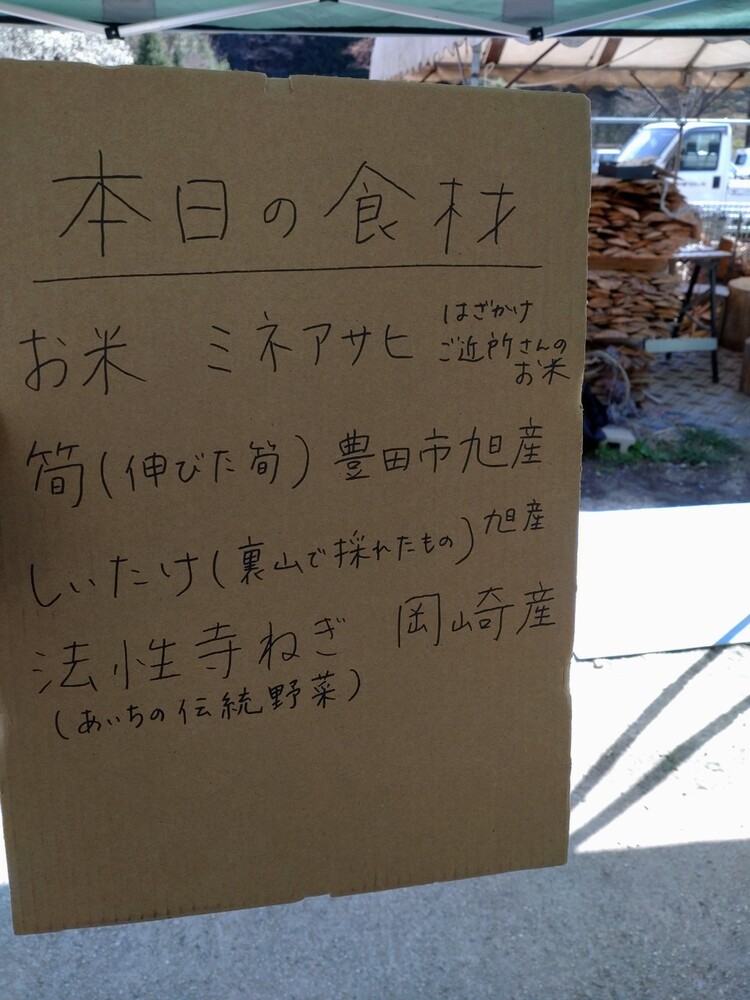 本日の食材
お米 ミネアサヒ はざかけ
ご近所さんの
お米
筍(伸びた筍) 豊田市旭産
しいたけ(裏山で採れたもの) 旭産
法性寺ねぎ 岡崎産
(あいちの伝統野菜)